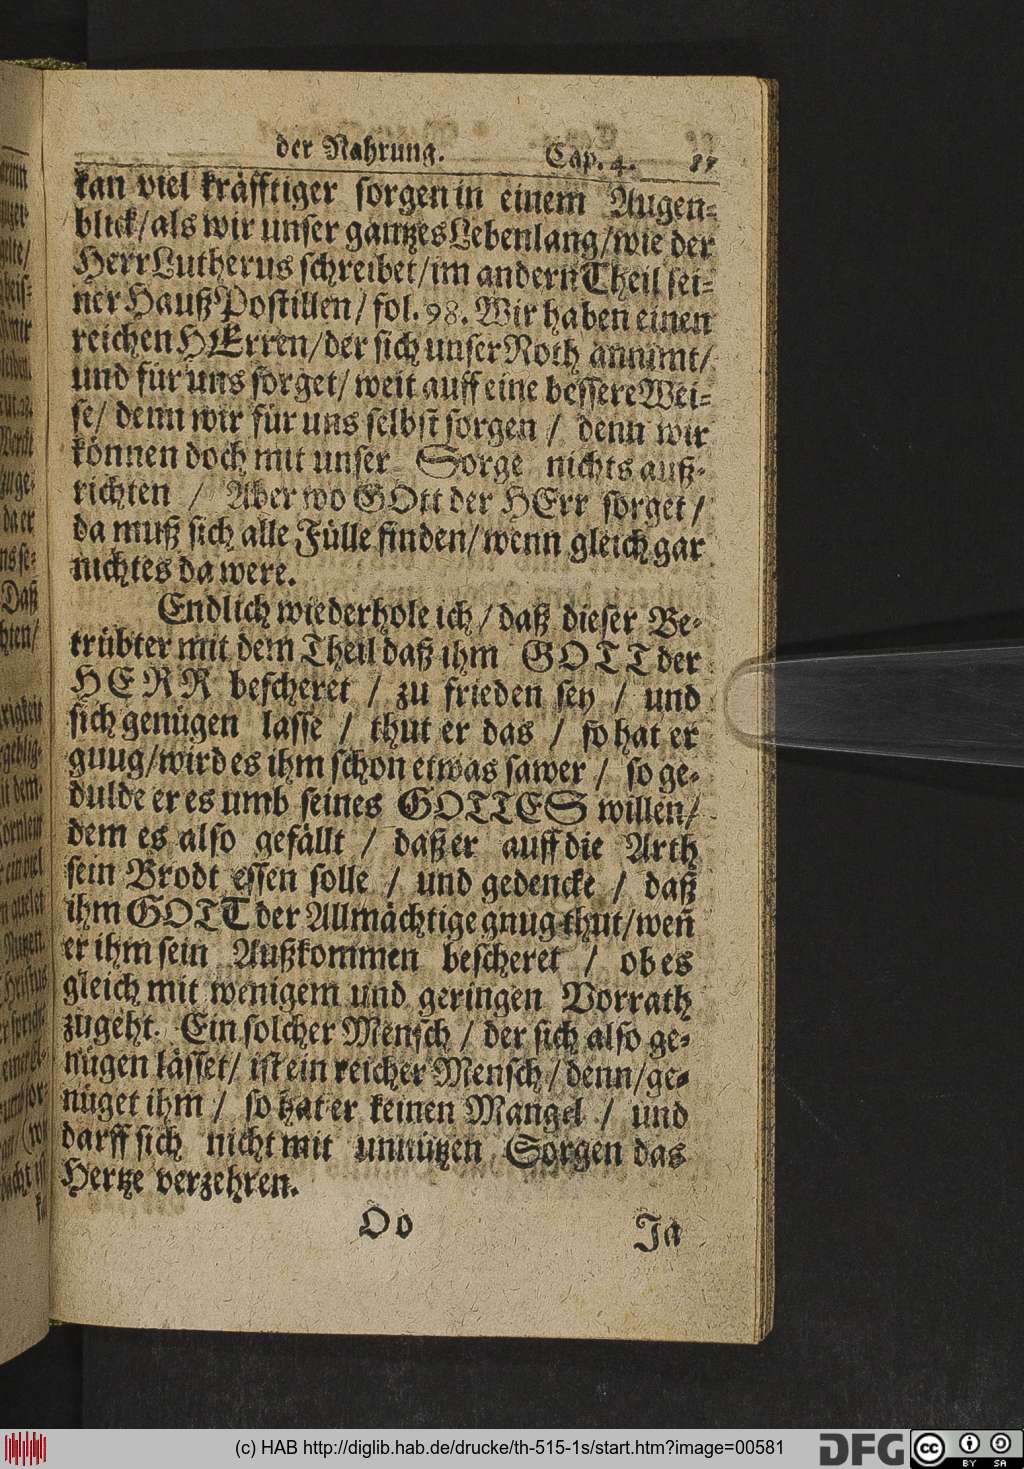 der Nahrung. Cap. 4. 57
kan viel kräfftiger sorgen in einem Augen-
blick/als wir unser gantzes Lebenlang/wie der
Herr Lutherus schreibet/im andern Theil sei-
ner HaußPostillen/ fol. 98. Wir haben einen
reichen HErren/der sich unser Noth annimt/
und für uns sorget/ weit auff eine bessere Wei-
se/ denn wir für uns selbst sorgen / denn wir
können doch mit unser Sorge nichts auß-
richten / Aber wo GOtt der HErr sorget/
da muß sich alle Fülle finden/wenn gleich gar
nichtes da were.
Endlich wiederhole ich/daß dieser Be-
trübter mit dem Theil daß ihm GOTT der
HERR bescheret / zu frieden sey / und
sich genügen lasse / thut er das / so hat er
gnug/wird es ihm schon etwas sawer / so ge-
dulde er es umb seines GOTTES willen/
dem es also gefällt / daß er auff die Arth
sein Brodt essen solle / und gedencke / daß
ihm GOTT der Allmächtige gnug thut/weñ
er ihm sein Außkommen bescheret / ob es
gleich mit wenigem und geringen Vorrath
zugeht. Ein solcher Mensch / der sich also ge-
nügen lässet/ ist ein reicher Mensch/denn/ge-
nüget ihm / so hat er keinen Mangel / und
darff sich nicht mit unnützen Sorgen das
Hertze verzehren.
Oo Ja
(c) HAB http://diglib.hab.de/drucke/th-515-1s/start.htm?image=00581
DFG
cc BY SA